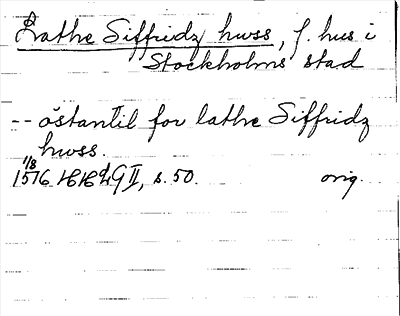 Lathe Siffridz hwss, f. hus i
Stockholms stad
-- östantil for lathe Siffridz
hwss.
1/8
1576 HHLG II, s. 50. orig.